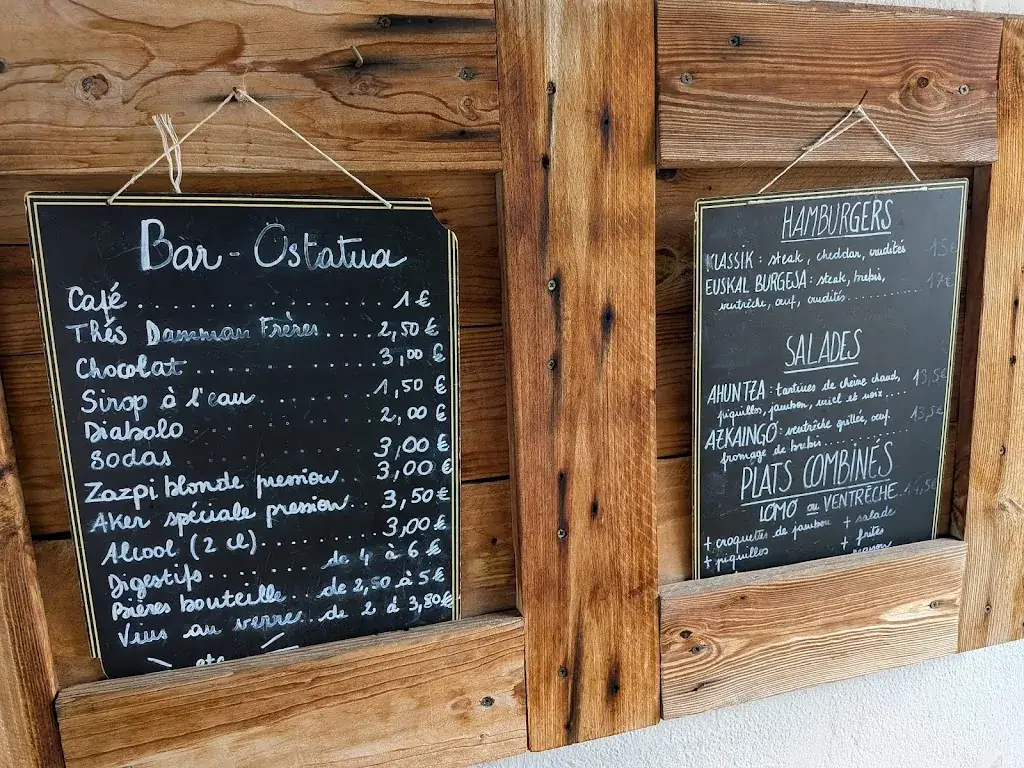 Bar - Ostatua
Café .......... 1 €
Thés Damman Frères ..... 2,50 €
Chocolat .......... 3,00 €
Sirop à l'eau .......... 1,50 €
Diabolo .......... 2,00 €
Sodas .......... 3,00 €
Zazpi blonde pression .. 3,00 €
Aker spéciale pression .. 3,50 €
Alcool (2 cl) .......... 3,00 €
Digestifs .......... de 4 à 6 €
Bières bouteille .. de 2,50 à 5 €
Vins au verre .. de 2 à 3,80 €
etc
HAMBURGERS
KLASSIK : steak, cheddar, crudités 15€
EUSKAL BURGESA : steak, brebis, 17€
ventrèche, œuf, crudités ..........
SALADES
AHUNTZA : tartines de chèvre chaud, 13,5€
piquillos, jambon, miel et noix ...
AZKAINGO : ventrèche grillée, œuf, 13,5€
fromage de brebis ..........
PLATS COMBINÉS
LOMO ou VENTRÈCHE 14,5€
+ croquettes de jambon + salade
+ piquillos + frites
maison